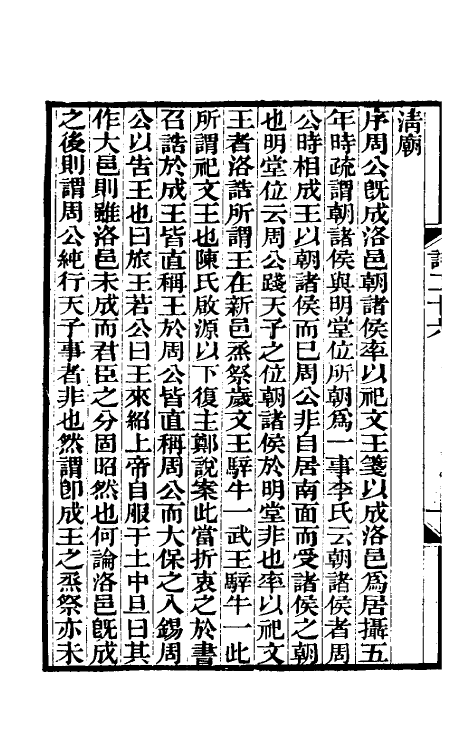 清廟
序周公旣成洛邑朝諸侯率以祀文王箋以成洛邑爲居攝五
年時疏謂朝諸侯與明堂位所朝爲一事李氏云朝諸侯者周
公時相成王以朝諸侯而已周公非自居南面而受諸侯之朝
也明堂位云周公踐天子之位朝諸侯於明堂非也率以祀文
王者洛誥所謂王在新邑烝祭歲文王騂牛一武王騂牛一此
所謂祀文王也陳氏啟源以下復主鄭說案此當折衷之於書
召誥於成王皆直稱王於周公皆直稱周公而大保之入錫周
公以告王也曰旅王若公曰王來紹上帝自服于土中旦曰其
作大邑則雖洛邑未成而君臣之分固昭然也何論洛邑旣成
之後則謂周公純行天子事者非也然謂卽成王之烝祭亦未
詩二十六